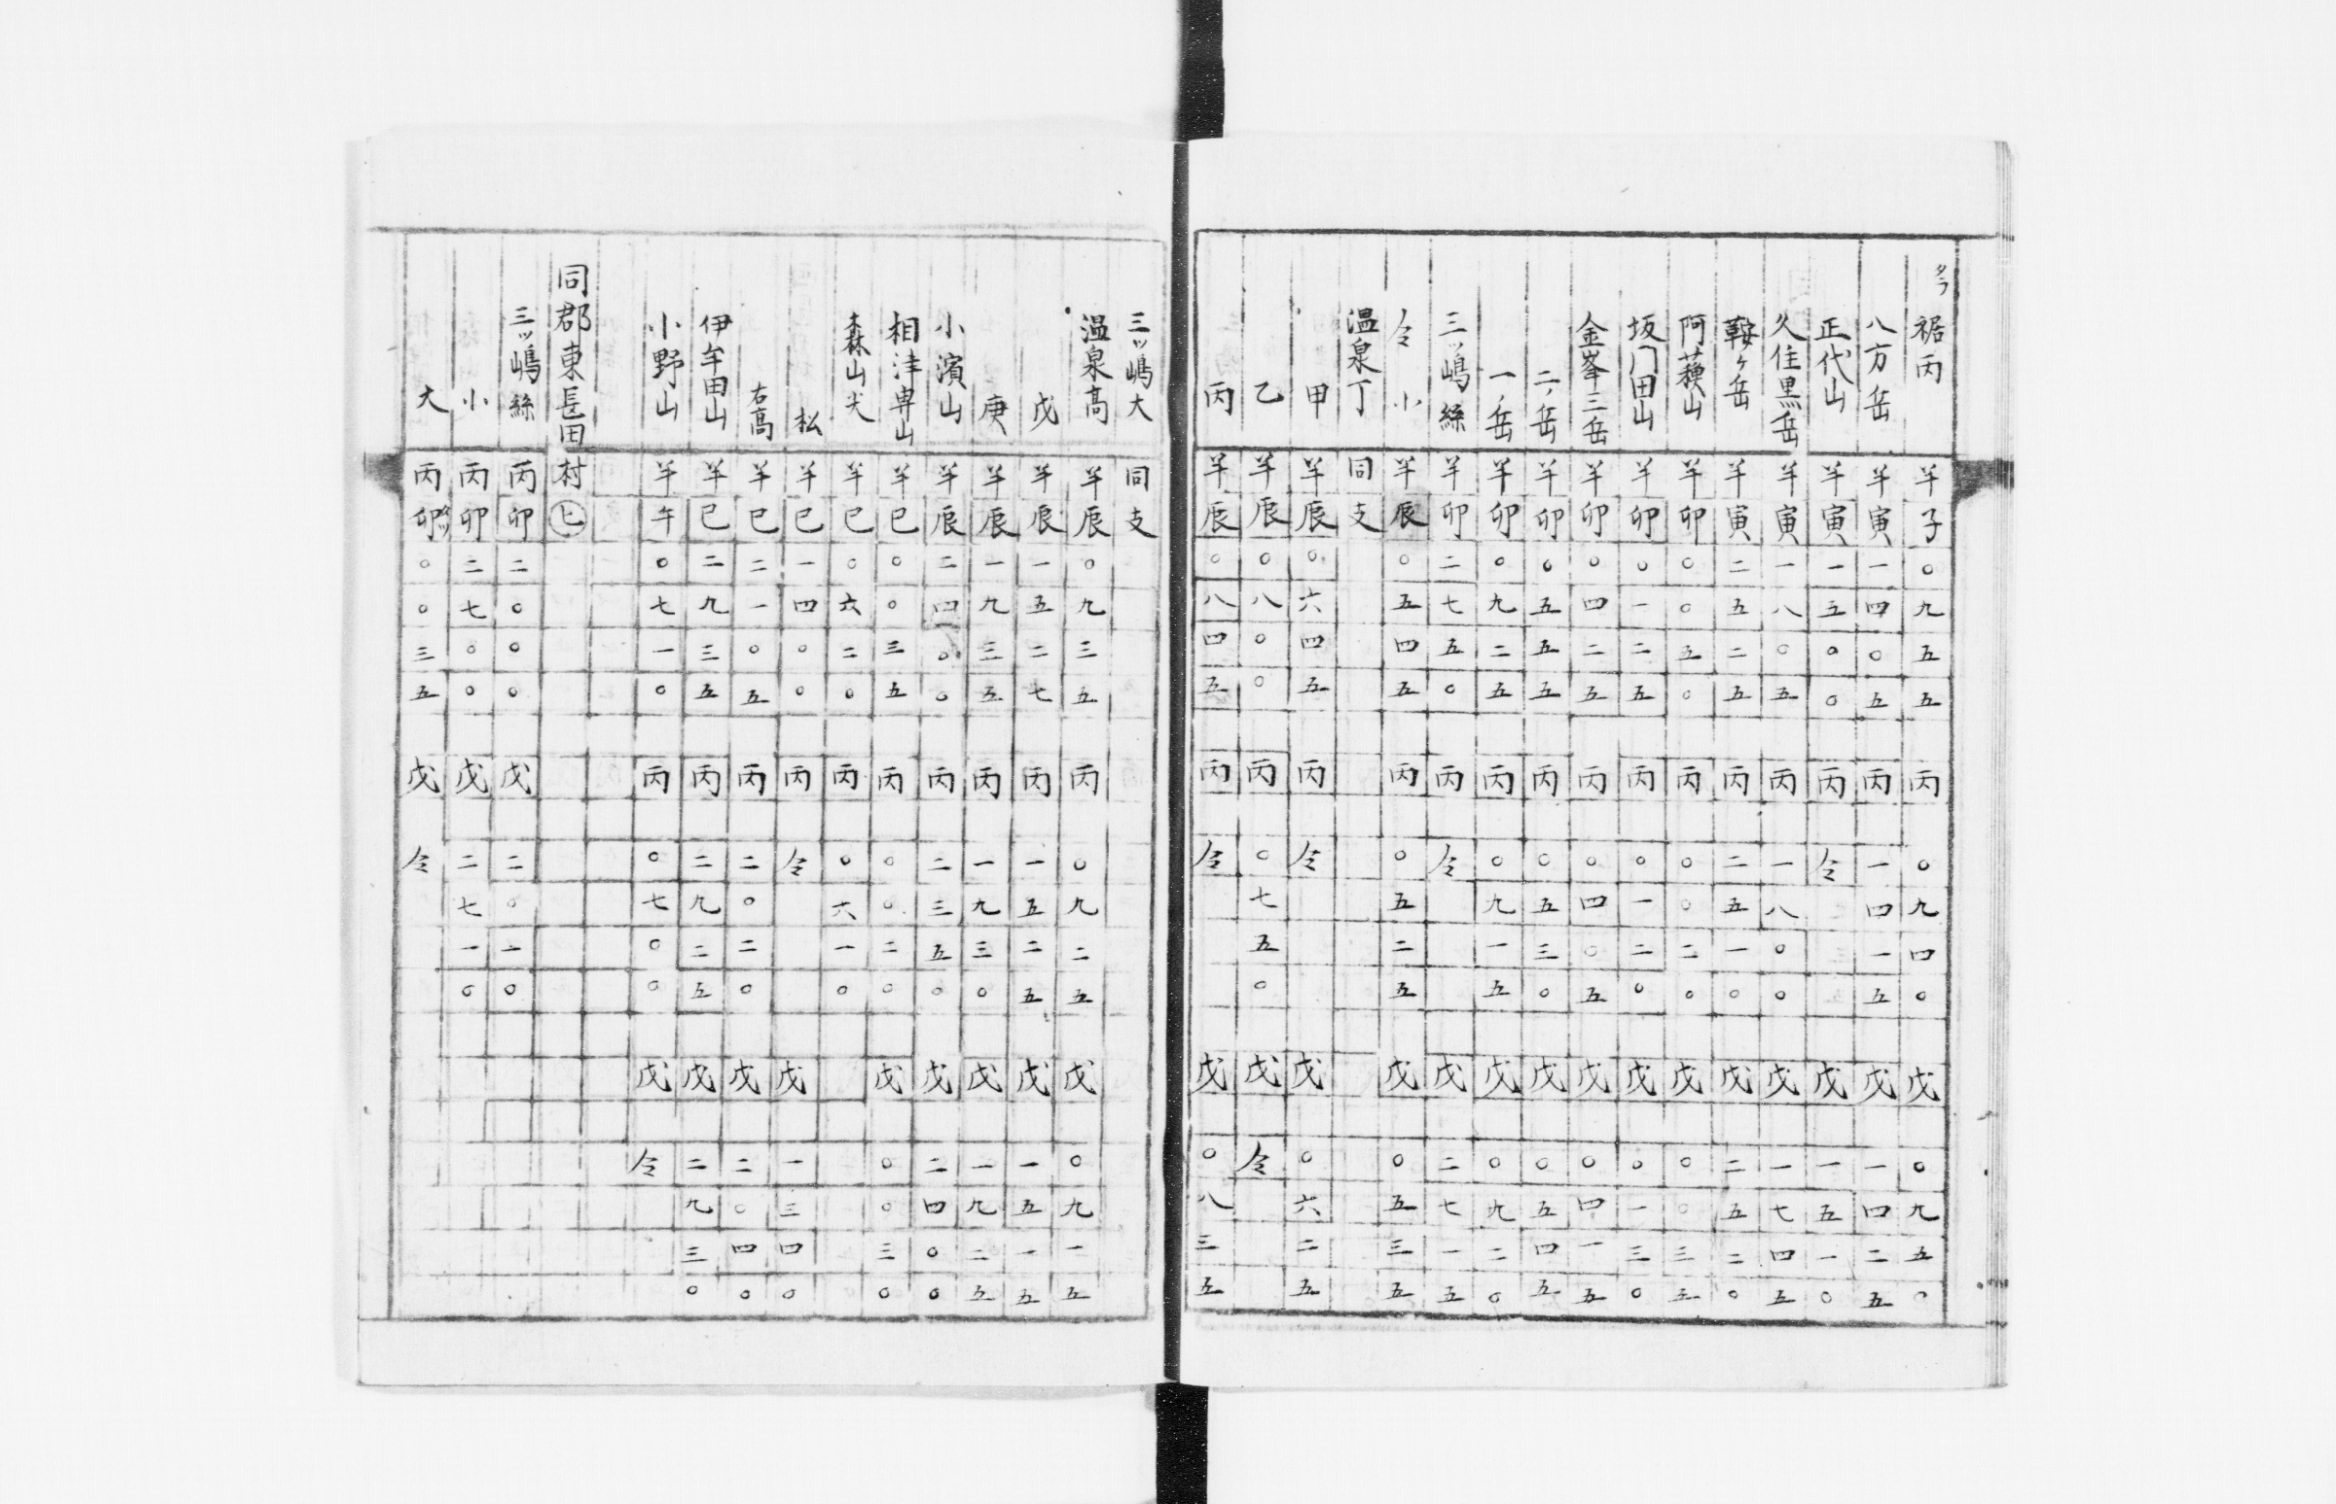 タラ 裾丙 羊子 〇九五五 丙 〇九四〇 戊 〇九五〇
八方岳 羊寅 一四〇五 丙 一四一五 戊 一四二五
正代山 羊寅 一五〇〇 丙 仝 戊 一五一〇
久住黒岳 羊寅 一八〇五 丙 一八〇〇 戊 一七四五
鞍ヶ岳 羊寅 二五二五 丙 二五一〇 戊 二五二〇
阿蘓山 羊卯 〇〇五〇 丙 〇〇二〇 戊 〇〇三五
坂门田山 羊卯 〇一二五 丙 〇一二〇 戊 〇一三〇
金峯三岳 羊卯 〇四二五 丙 〇四〇五 戊 〇四一五
二ノ岳 羊卯 〇五五五 丙 〇五三〇 戊 〇五四五
一ノ岳 羊卯 〇九二五 丙 〇九一五 戊 〇九二〇
三ッ嶋絲 羊卯 二七五〇 丙 仝 戊 二七一五
仝 小 羊辰 〇五四五 丙 〇五二五 戊 〇五三五
温泉丁 同支
甲 羊辰 〇六四五 丙 仝 戊 〇六二五
乙 羊辰 〇八〇〇 丙 〇七五〇 戊 仝
丙 羊辰 〇八四五 丙 仝 戊 〇八三五
三ッ嶋大 同支
温泉高 羊辰 〇九三五 丙 〇九二五 戊 〇九一五
戊 羊辰 一五二七 丙 一五二五 戊 一五一五
庚 羊辰 一九三五 丙 一九三〇 戊 一九二五
小濱山 羊辰 二四〇〇 丙 二三五〇 戊 二四〇〇
相津専山 羊巳 〇〇三五 丙 〇〇二〇 戊 〇〇三〇
森山尖 羊巳 〇六二〇 丙 〇六一〇
松 羊巳 一四〇〇 丙 仝 戊 一三四〇
右高 羊巳 二一〇五 丙 二〇二〇 戊 二〇四〇
伊牟田山 羊巳 二九三五 丙 二九二五 戊 二九三〇
小野山 羊午 〇七一〇 丙 〇七〇〇 戊 仝
同郡東長田村 ㋪
三ッ嶋絲 丙卯 二〇〇〇 戊 二〇一〇
小 丙卯 二七〇〇 戊 二七一〇
大 丙卯 〇〇三五 戊 仝